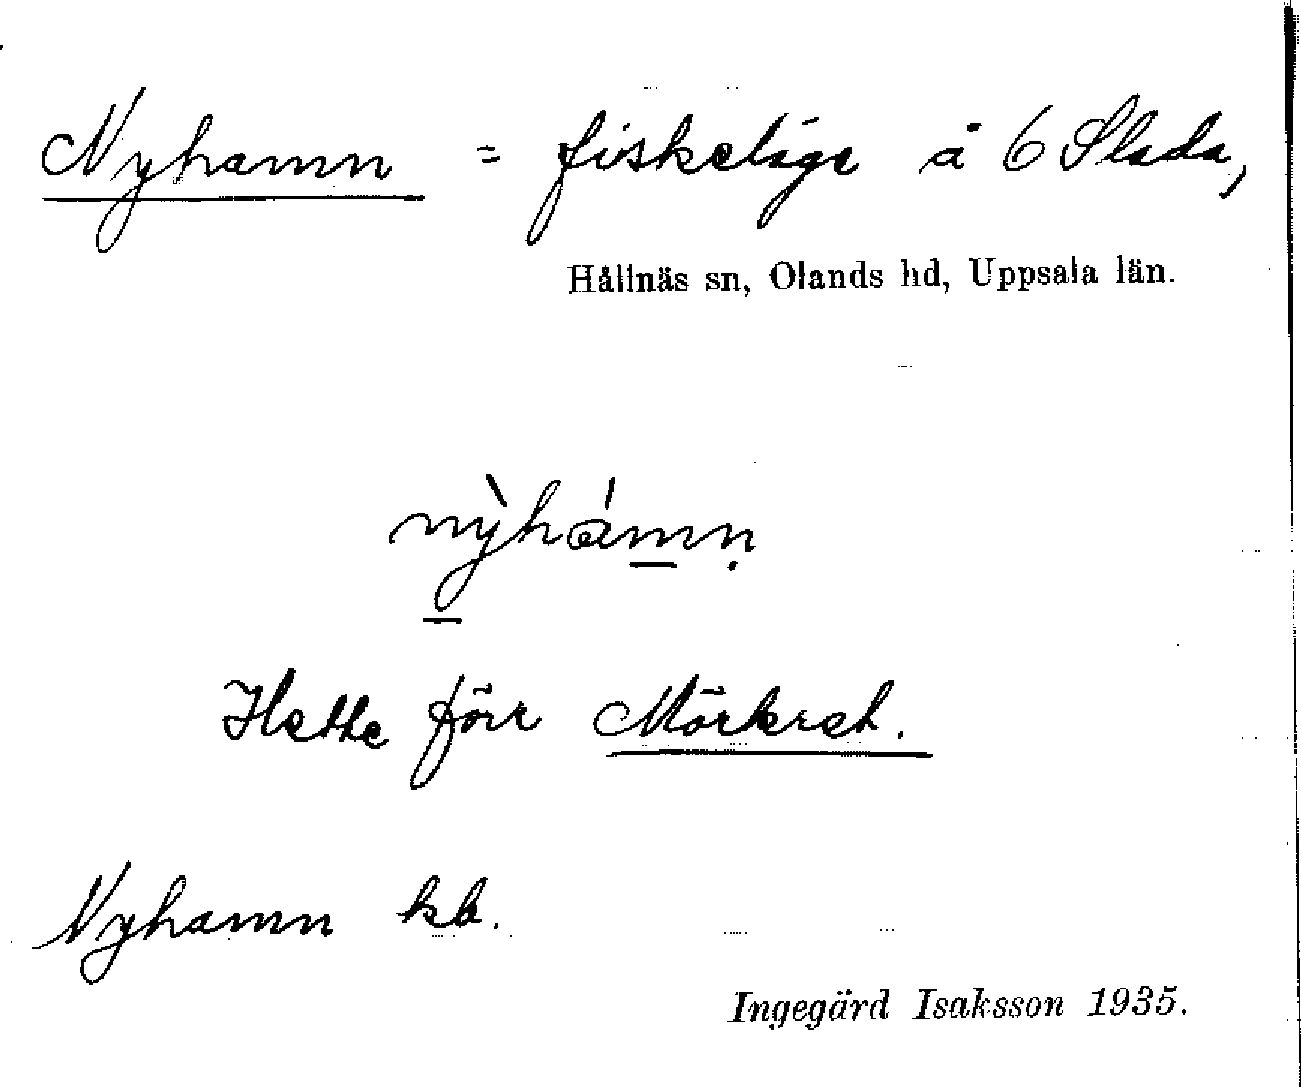 Nyhamn = fiskeläge å 6 Slada,
Hållnäs sn, Olands hd, Uppsala län.
nỳhámṇ
Hette förr Mörkret.
Nyhamn kb.
Ingegärd Isaksson 1935.